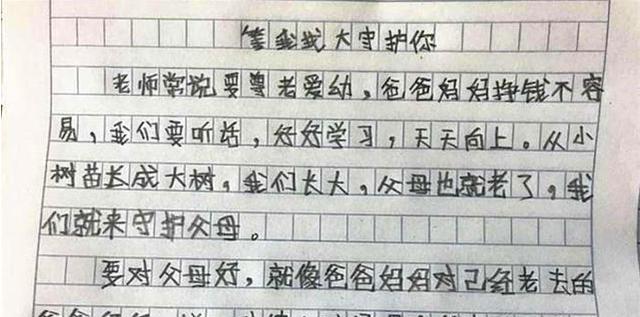 等我长大守护你
老师常说要尊老爱幼,爸爸妈妈挣钱不容
易,我们要听话,好好学习,天天向上。从小
树苗长成大树,我们长大,父母也就老了,我
们就来守护父母。
要对父母好,就像爸爸妈妈对己经老去的